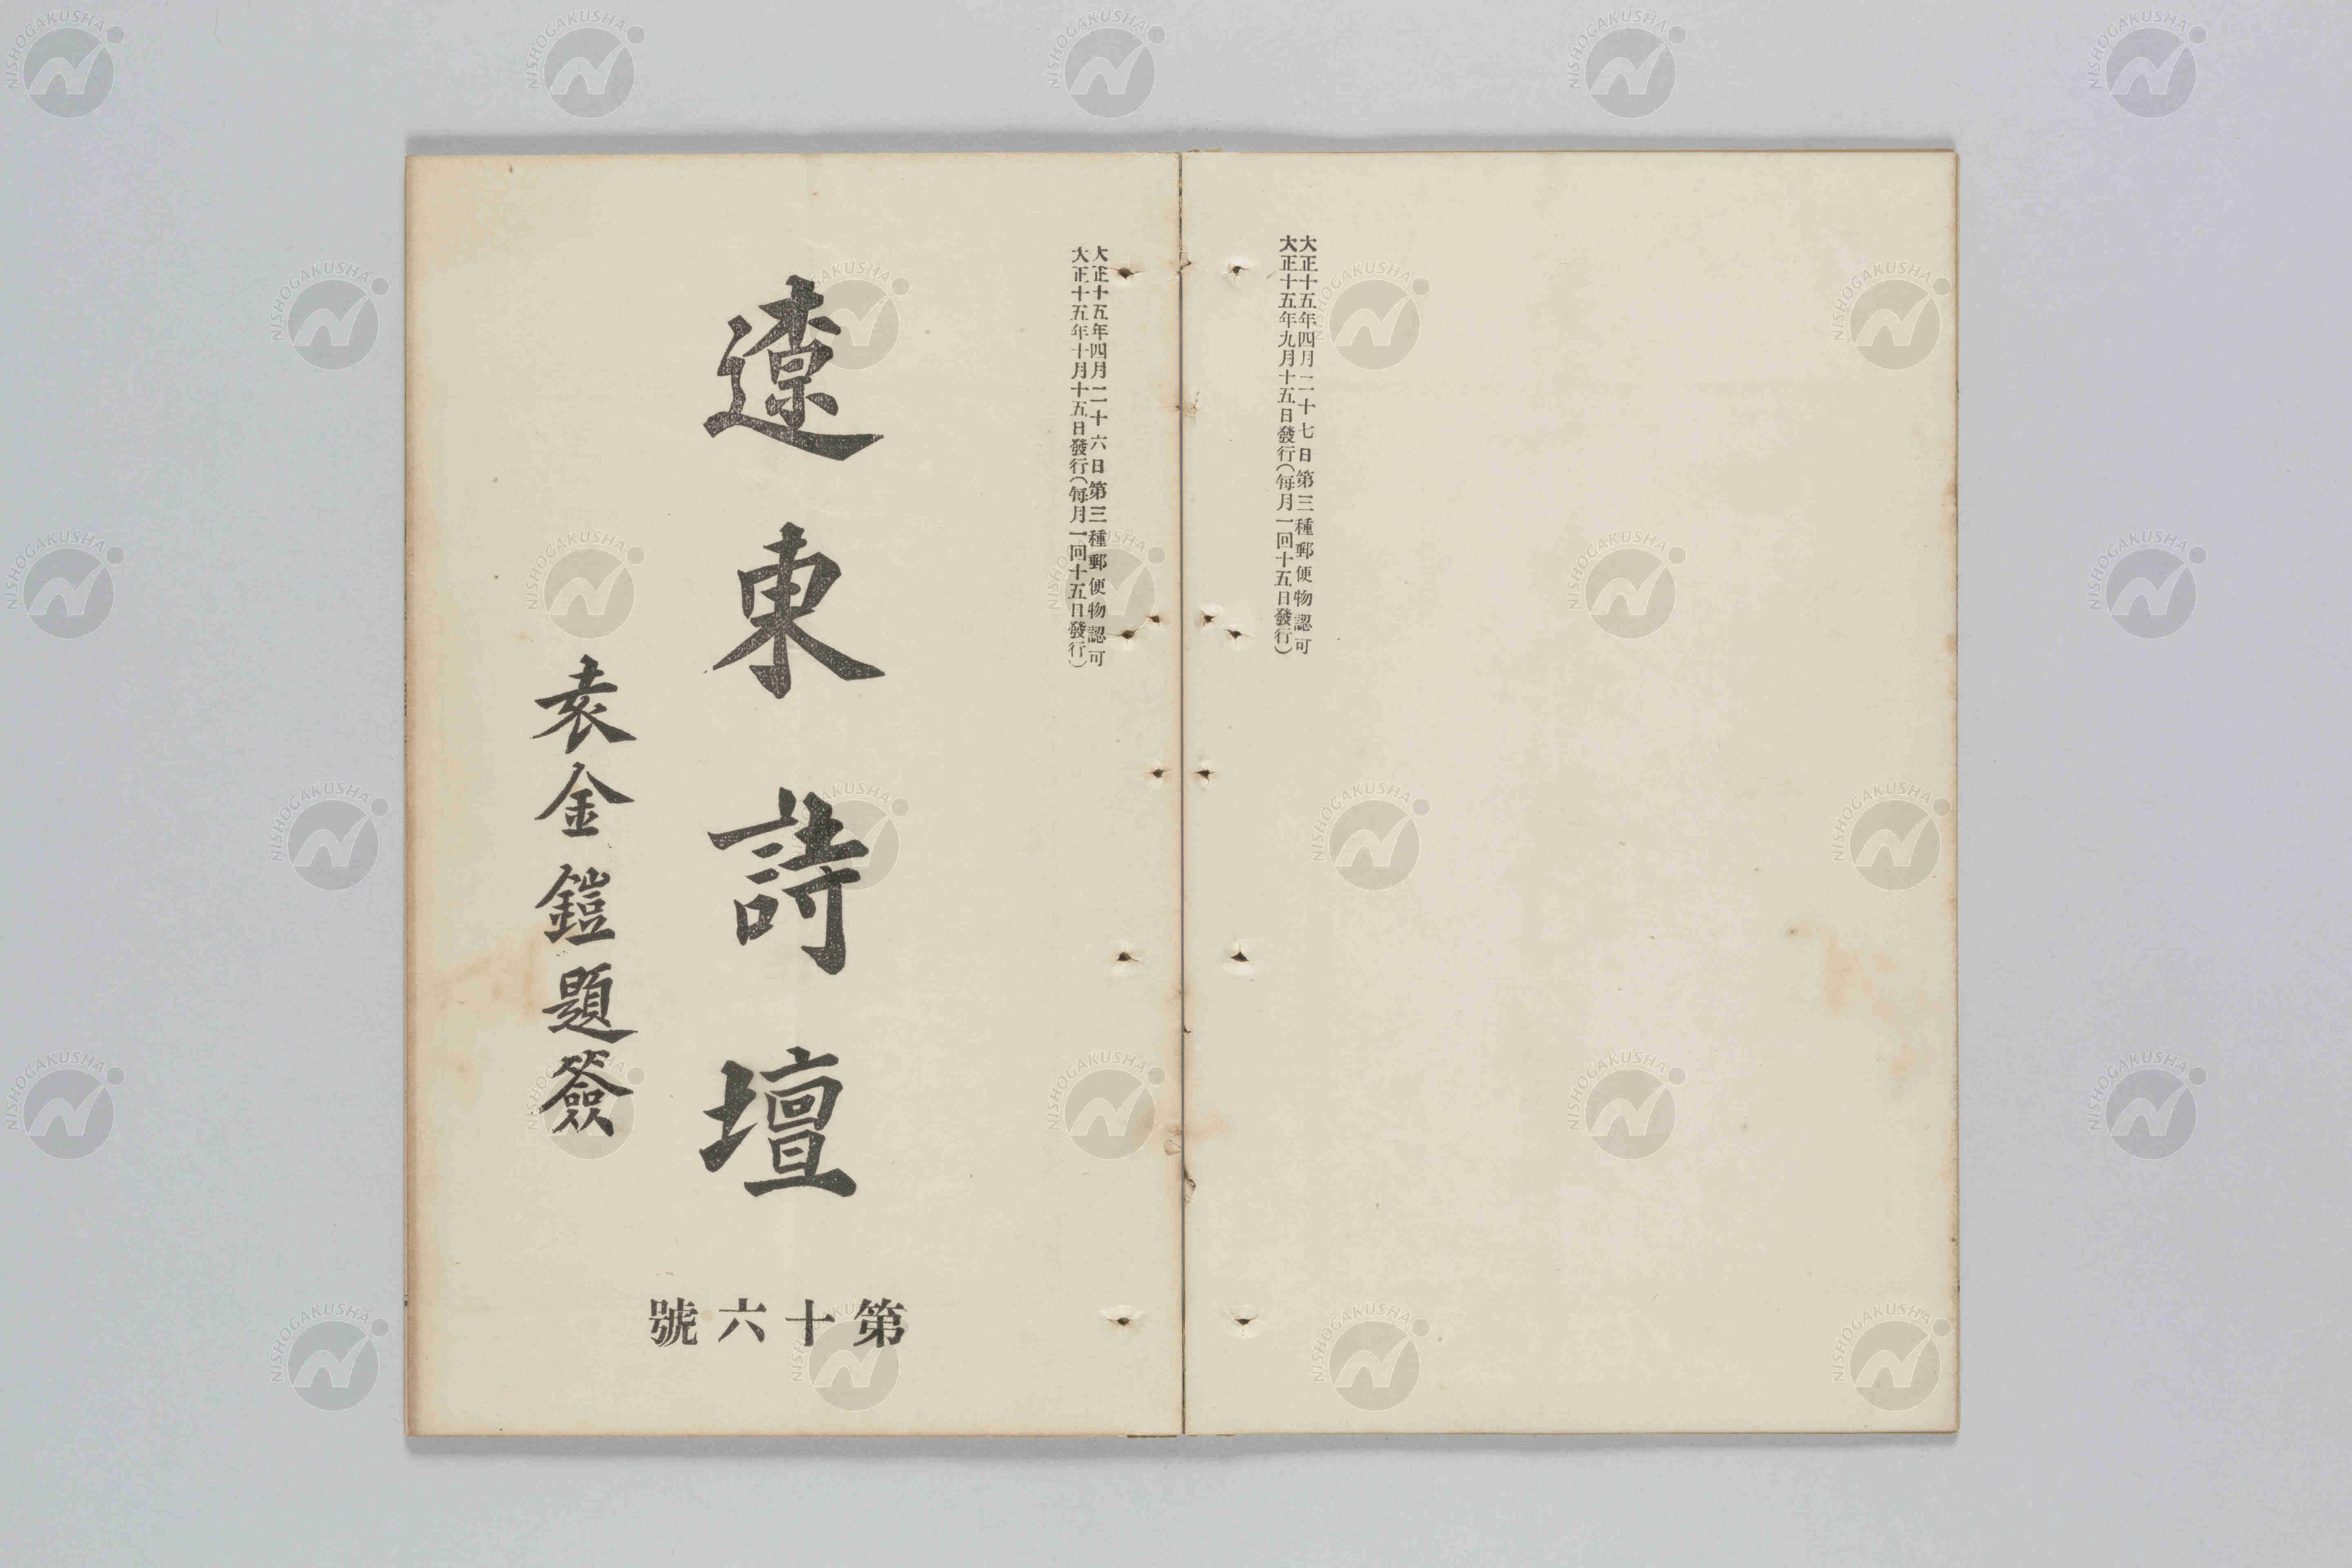 大正十五年四月二十七日第三種郵便物認可
大正十五年九月十五日發行(每月一回十五日發行)
大正十五年四月二十六日第三種郵便物認可
大正十五年十月十五日發行(每月一回十五日發行)
遼東詩壇
袁金鎧題簽
第十六號
NISHOGAKUSHA